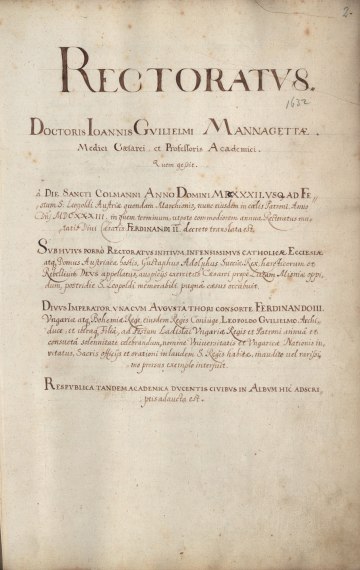 2.
RECTORATVS.
1632
DOCTORIS IOANNIS GVILIELMI MANNAGETTÆ.
Medici Cæsarei, et Professoris Academici.
Quem gessit.
à DIE SANCTI COLMANNI ANNO DOMINI. MDCXXXII. VSQ. AD FE-
stum S. Leopoldi Austriæ quondam Marchionis, nunc eiusdem in cœlis Patroni. Anni
MDCXXXIII, in quem terminum, utpote commodiorem annua Rectoratus mu-
tatio Divi Cæsaris FERDINANDI II. decreto translata est.
SVB HVIVS PORRÒ RECTORATVS INITIVM, INFENSISSIMVS CATHOLICÆ ECCLESIÆ
atq. Domus Austriacæ hostis, Gustavus Adolphus Sueciæ Rex, hæreticorum et
Rebellium DEVS appellatus, auspicijs exercitus Cæsarei prope Luzam Misniæ oppi-
dum, postridie S. Leopoldi memorabili pugnâ cæsus occubuit.
DIVVS IMPERATOR VNA CVM AVGVSTA THORI CONSORTE, FERDINANDO III.
Vngariæ atq. Bohemiæ Rege, eiusdem Regis Coniuge, LEOPOLDO GVILIELMO Archi-
duce, et Filia, ad Festum Ladislai Vngariæ Regis et Patroni annuâ et
consuetâ solennitate celebrandum, nomine Vniversitatis et Vngaricæ Nationis in-
vitatus, Sacris officijs et orationi in laudem S. Regis habitæ, inaudito vel rarissi-
mo prorsus exemplo interfuit.
RESPVBLICA TANDEM ACADEMICA DVCENTIS CIVIBVS IN ALBVM HIC ADSCRI-
ptis adaucta est.